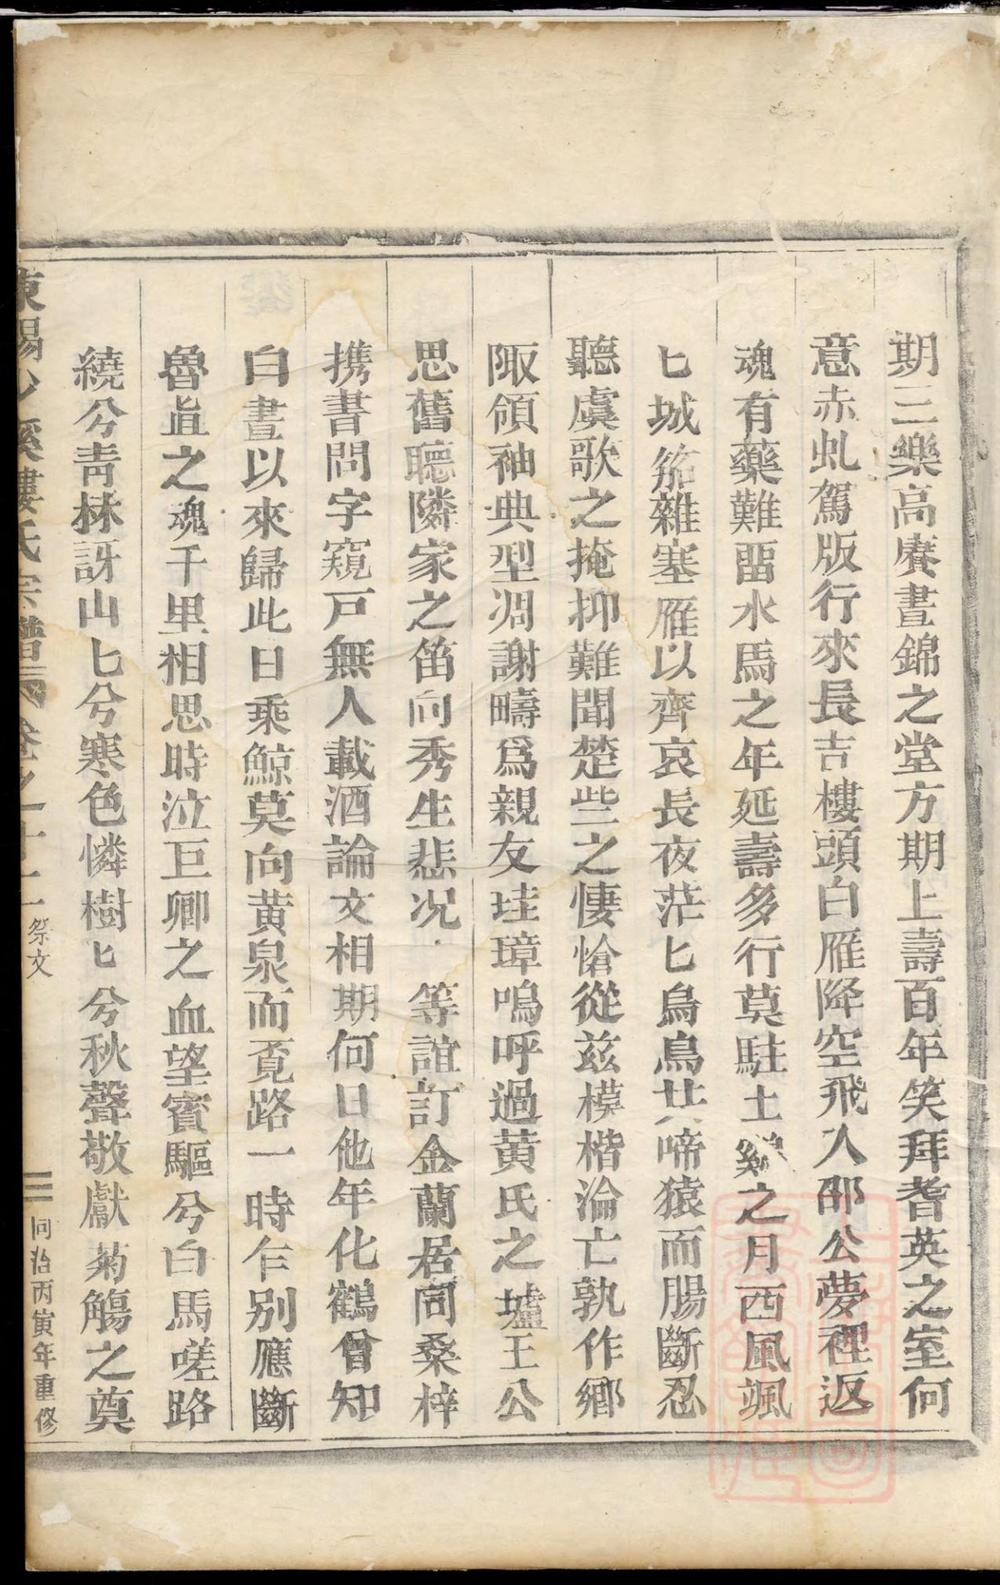 期三樂高賡晝錦之堂方期上壽百年笑拜耆英之室何
意赤虬駕版行來長吉樓頭白雁降空飛入邵公夢裡返
魂有藥難畱水馬之年延壽多行莫駐土雞之月西風颯
匕城笳雜塞雁以齊哀長夜茫匕烏鳥共啼猿而腸斷忍
聽虞歌之掩抑難聞楚些之悽愴從兹模楷淪亡孰作鄉
陬領袖典型凋謝疇爲親友珪璋嗚呼過黄氏之墟王公
思舊聽隣家之笛向秀生悲况 等誼訂金蘭居同桑梓
携書問字窺戸無人載酒論文相期何日他年化鶴曾知
白晝以來歸此日乘鯨莫向黄泉而覔路一時乍别應斷
魯㫖之魂千里相思時泣巨卿之血望賓驅兮白馬嗟路
繞兮靑林訝山匕兮寒色憐樹匕兮秋聲敬獻菊觴之奠
東陽 溪樓氏宗譜 卷之十一 祭文 同治丙寅年重修